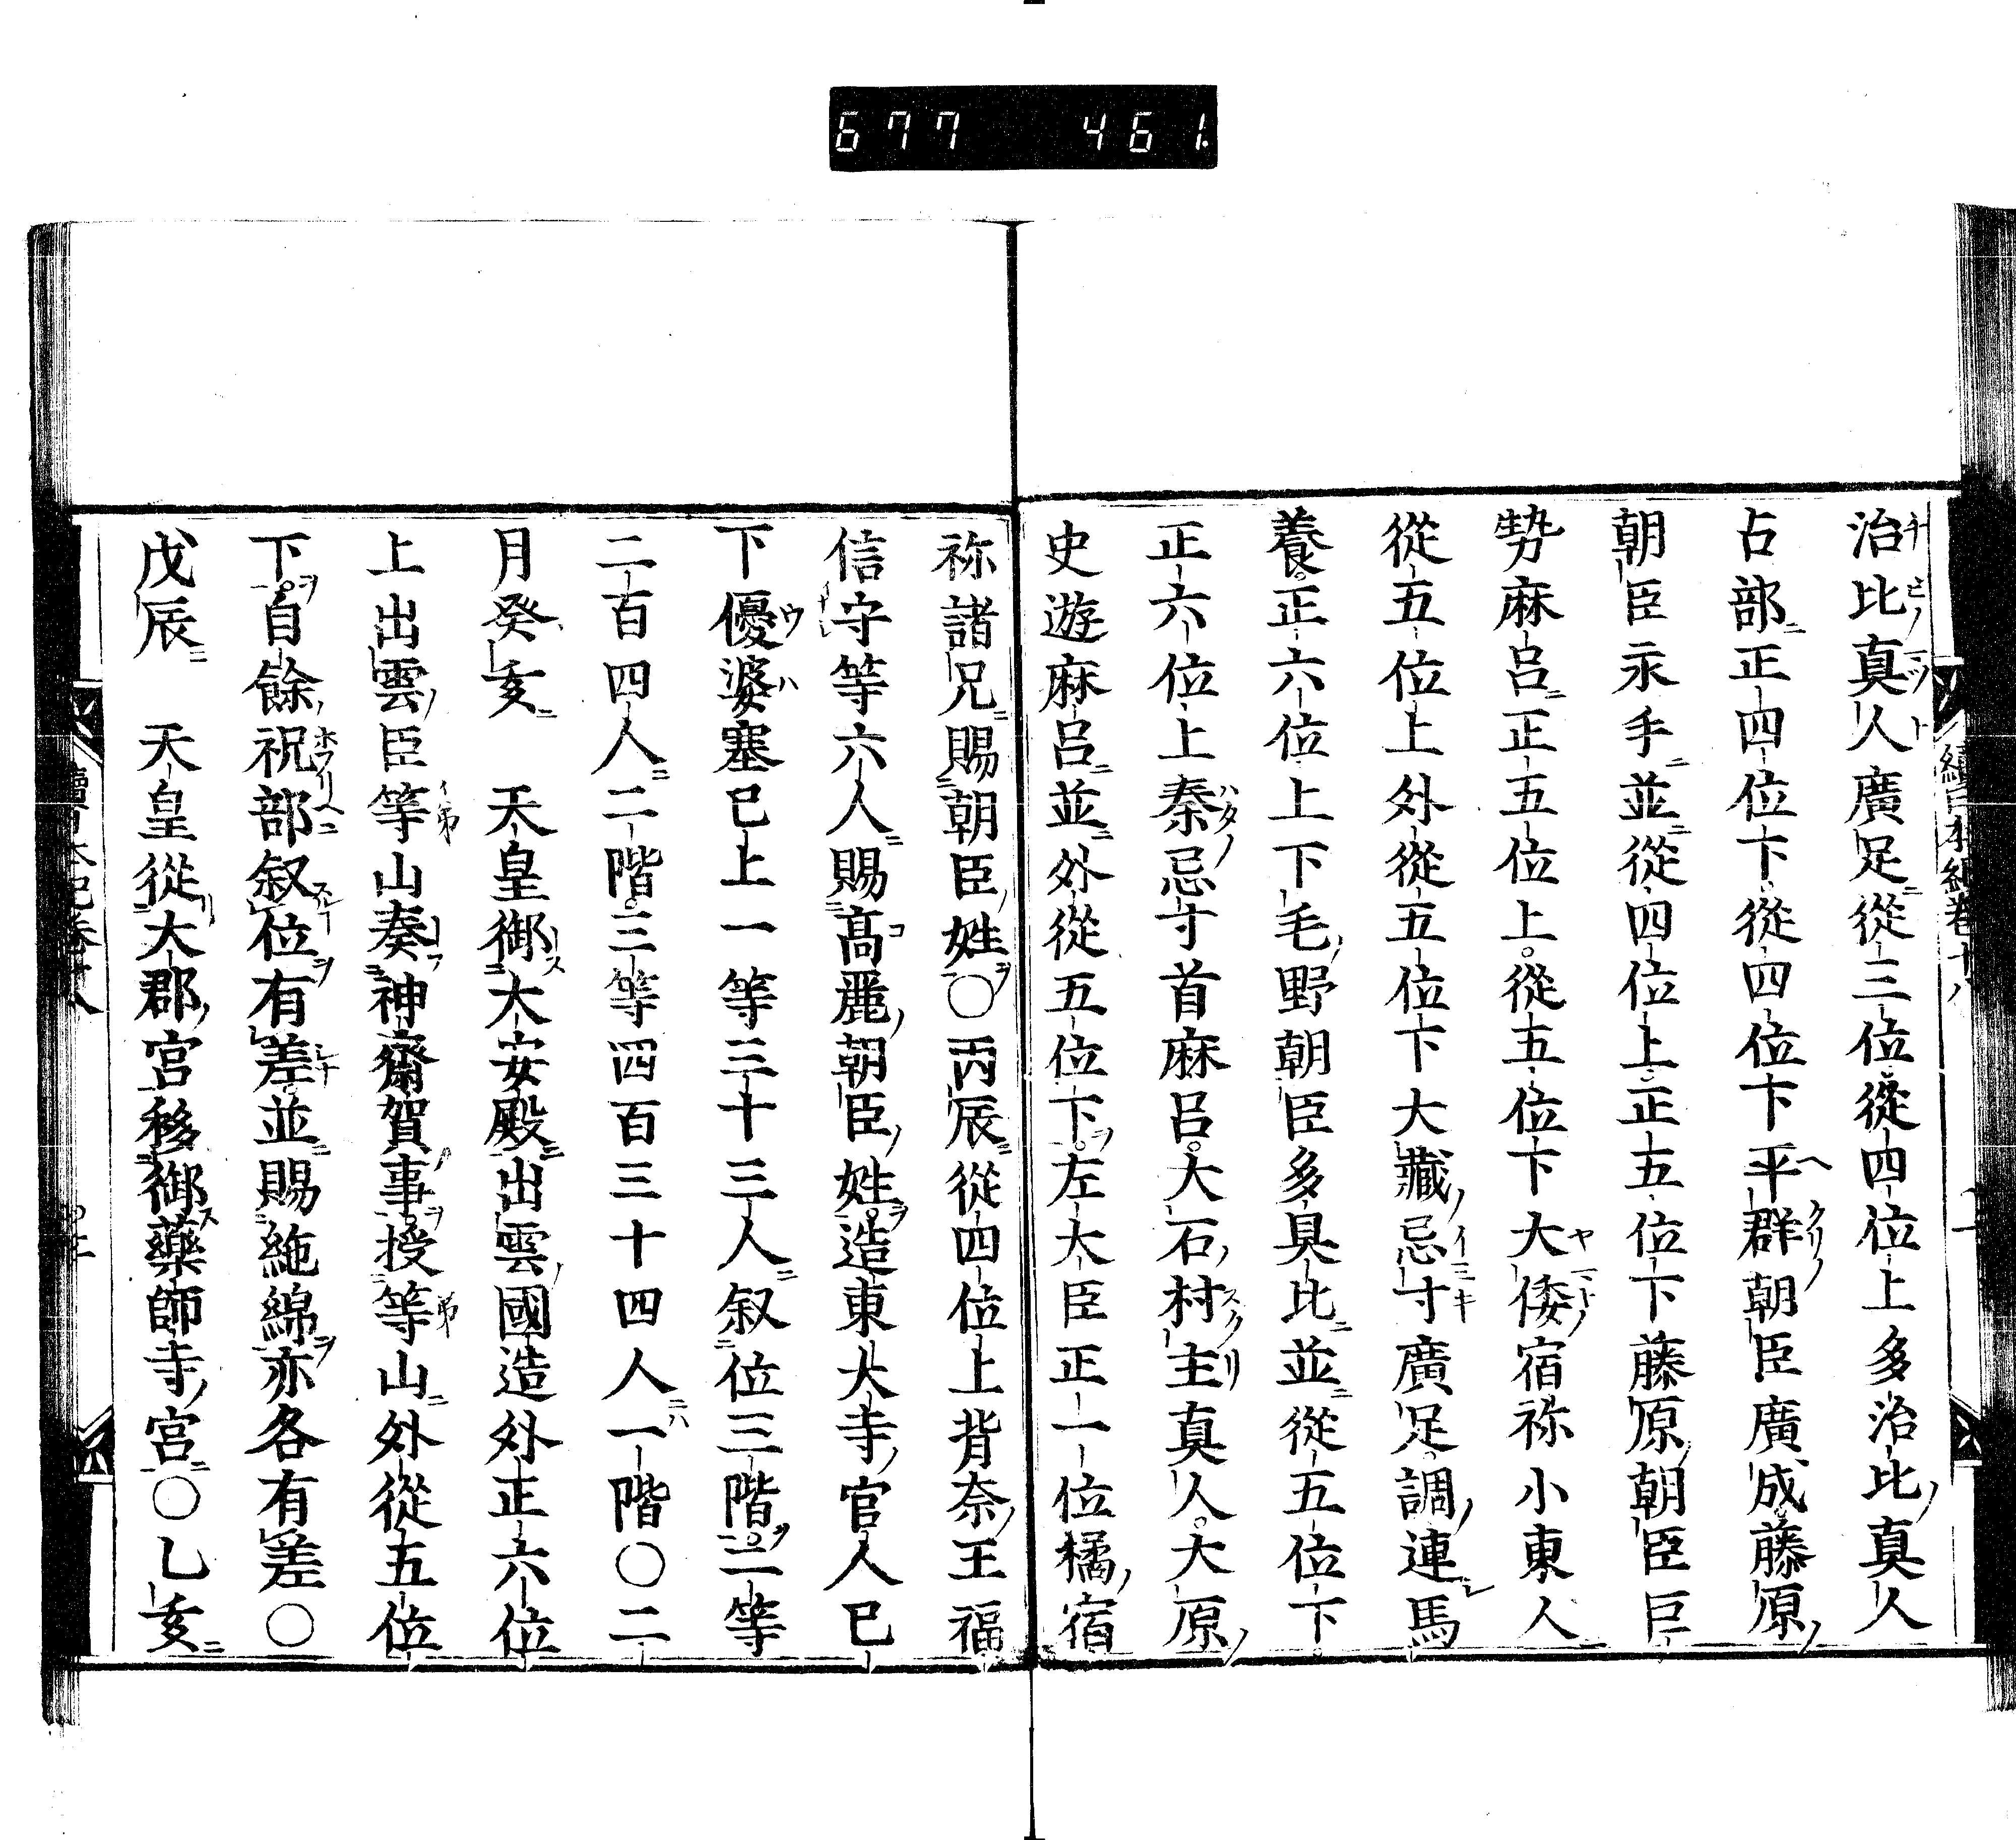 677 461.
治比真人廣足從三位從四位上多治比真人
占部正四位下從四位下平群朝臣廣成藤原
朝臣永手並從四位上正五位下藤原朝臣巨
勢麻呂正五位上從五位下大倭宿祢小東人
從五位上外從五位下大藏忌寸廣足調連馬
養正六位上下毛野朝臣多具比並從五位下
正六位上秦忌寸首麻呂大石村主真人大原
史遊麻呂並外從五位下左大臣正一位橘宿
祢諸兄賜朝臣姓○丙辰從四位上背奈王福
信守等六人賜髙麗朝臣姓造東大寺官人已
下優婆塞已上一等三十三人叙位三階二等
二百四人二階三等四百三十四人一階○二
月癸亥　天皇御大安殿出雲國造外正六位
上出雲臣等山奏神齋賀事授等山外從五位
下自餘祝部叙位有差並賜絁綿亦各有差○
戊辰　天皇從大郡宮移御藥師寺宮○乙亥